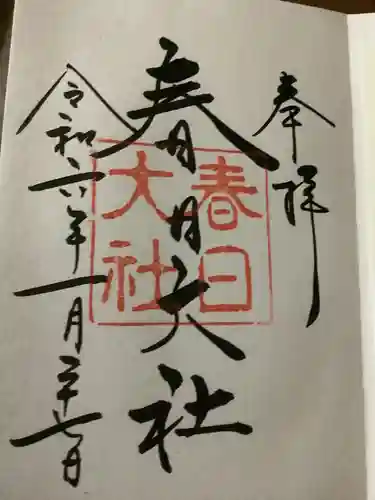 奉拝
春日大社
春日
大社
令和六年一月二十七日